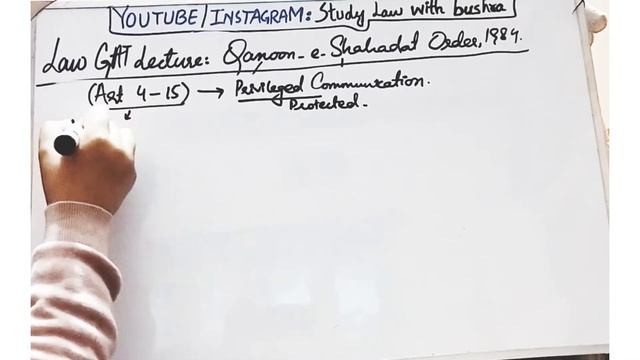 YOUTUBE/INSTAGRAM: Study Law with bushra
Law GAT Lecture: Qanoon-e-Shahadat Order, 1984.
(Art 4-15) → Privileged Communication.
Protected.